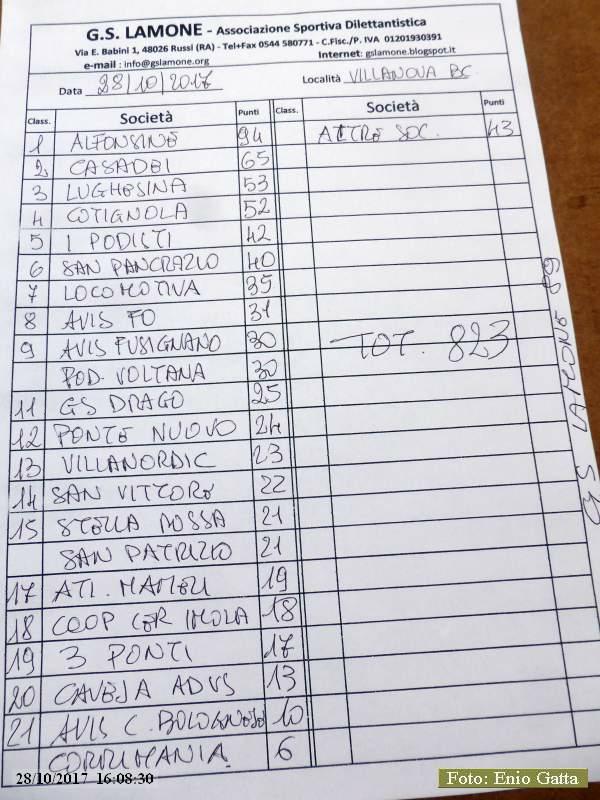 G.S. LAMONE - Associazione Sportiva Dilettantistica
Via E. Babini 1, 48026 Russi (RA) - Tel+Fax 0544 580771 - C.Fisc./P. IVA 01201930391
e-mail : info@gslamone.org Internet: gslamone.blogspot.it
Data 28/10/2017 Località VILLANOVA BC.
Class. Società Punti Class. Società Punti
1 ALFONSINE 94 ALTRE SOC. 43
2 CASADEI 65
3 LUGHESINA 53
4 COTIGNOLA 52
5 I PODISTI 42
6 SAN PANCRAZIO 40
7 LOCOMOTIVA 35
8 AVIS FO 31
9 AVIS FUSIGNANO 30 TOT. 823
POD. VOLTANA 30
11 GS DRAGO 25
12 PONTE NUOVO 24
13 VILLANORDIC 23
14 SAN VITTORE 22
15 STELLA ROSSA 21
SAN PATRIZIO 21
17 ATL. MAMELI 19
18 COOP CER IMOLA 18
19 3 PONTI 17
20 CAVEJA ADVS 13
21 AVIS C. BOLOGNESE 10
CORRIMANIA 6
GS LAMONE 69
28/10/2017 16:08:30
Foto: Enio Gatta